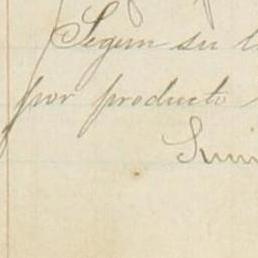 Segun su
por producto